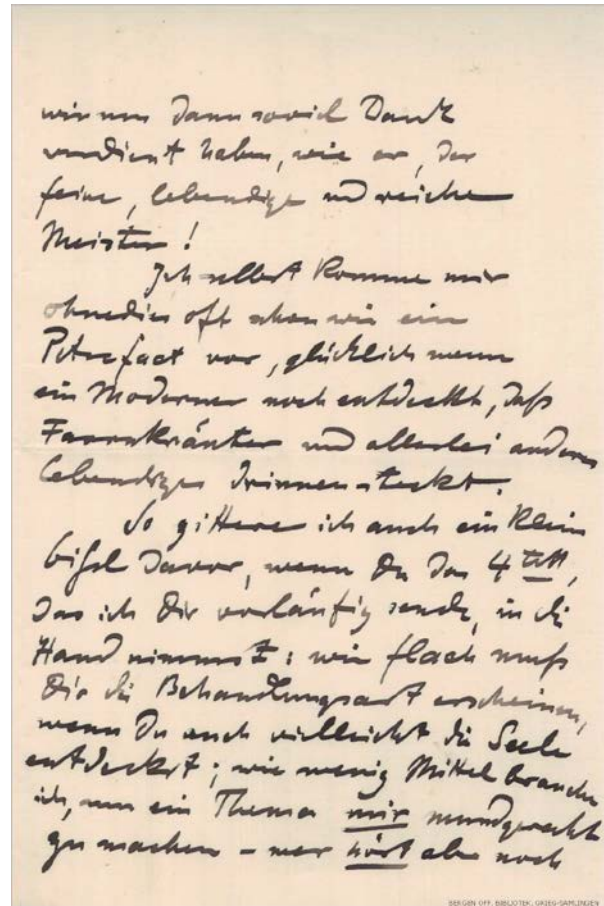 wir um dann soviel Dank
verdient haben, wie er, der
feine, lebendige und reiche
Meister!
Ich selbst komme mir
ohnedies oft schon wie ein
Petrefact vor, glücklich wenn
ein Moderner noch entdeckt, daß
Farrnkräuter und allerlei anderes
lebendiges drinnen steckt.
So zittere ich auch ein klein
bißel davor, wenn Du das 4tett,
das ich Dir vorläufig sende, in die
Hand nimmst: wie flach muß
Dir die Behandlungsart erscheinen,
wenn Du auch vielleicht die Seele
entdeckst; wie wenig Mittel brauche
ich, um ein Thema mir mundgerecht
zu machen – wer hört aber noch
BERGEN OFF. BIBLIOTEK, GRIEG-SAMLINGEN